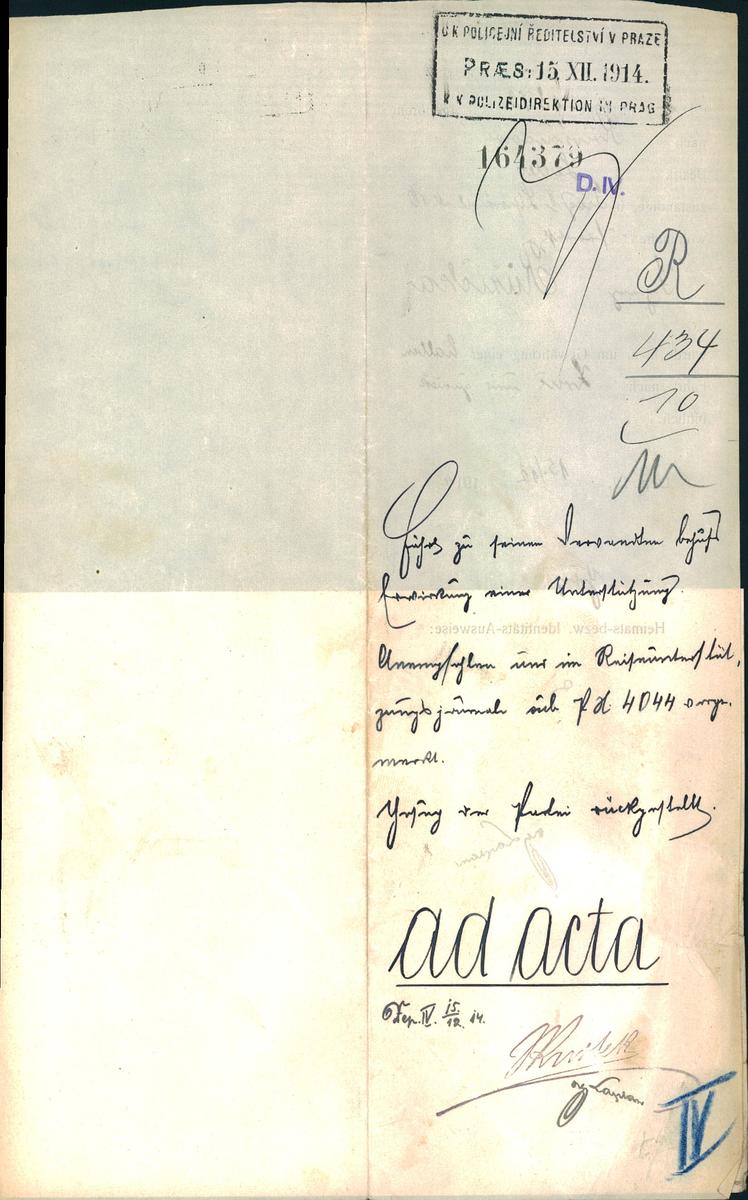 C K POLICEJNÍ ŘEDITELSTVÍ V PRAZE
PRÆS: 15. XII. 1914.
K K POLIZEIDIREKTION IN PRAG
164379
D. IV.
R
434
10
Fährt zu seinen Verwandten behufs
Erwirkung einer Unterstützung.
Anempfohlen und im Reiseunterstüt-
zungsjournale sub 4044 vorge-
merkt.
Gesuch der Partei rückgestellt.
Heimats-bezw. Identitäts-Ausweise:
ad acta
Dep. IV. 15/12. 14.
IV